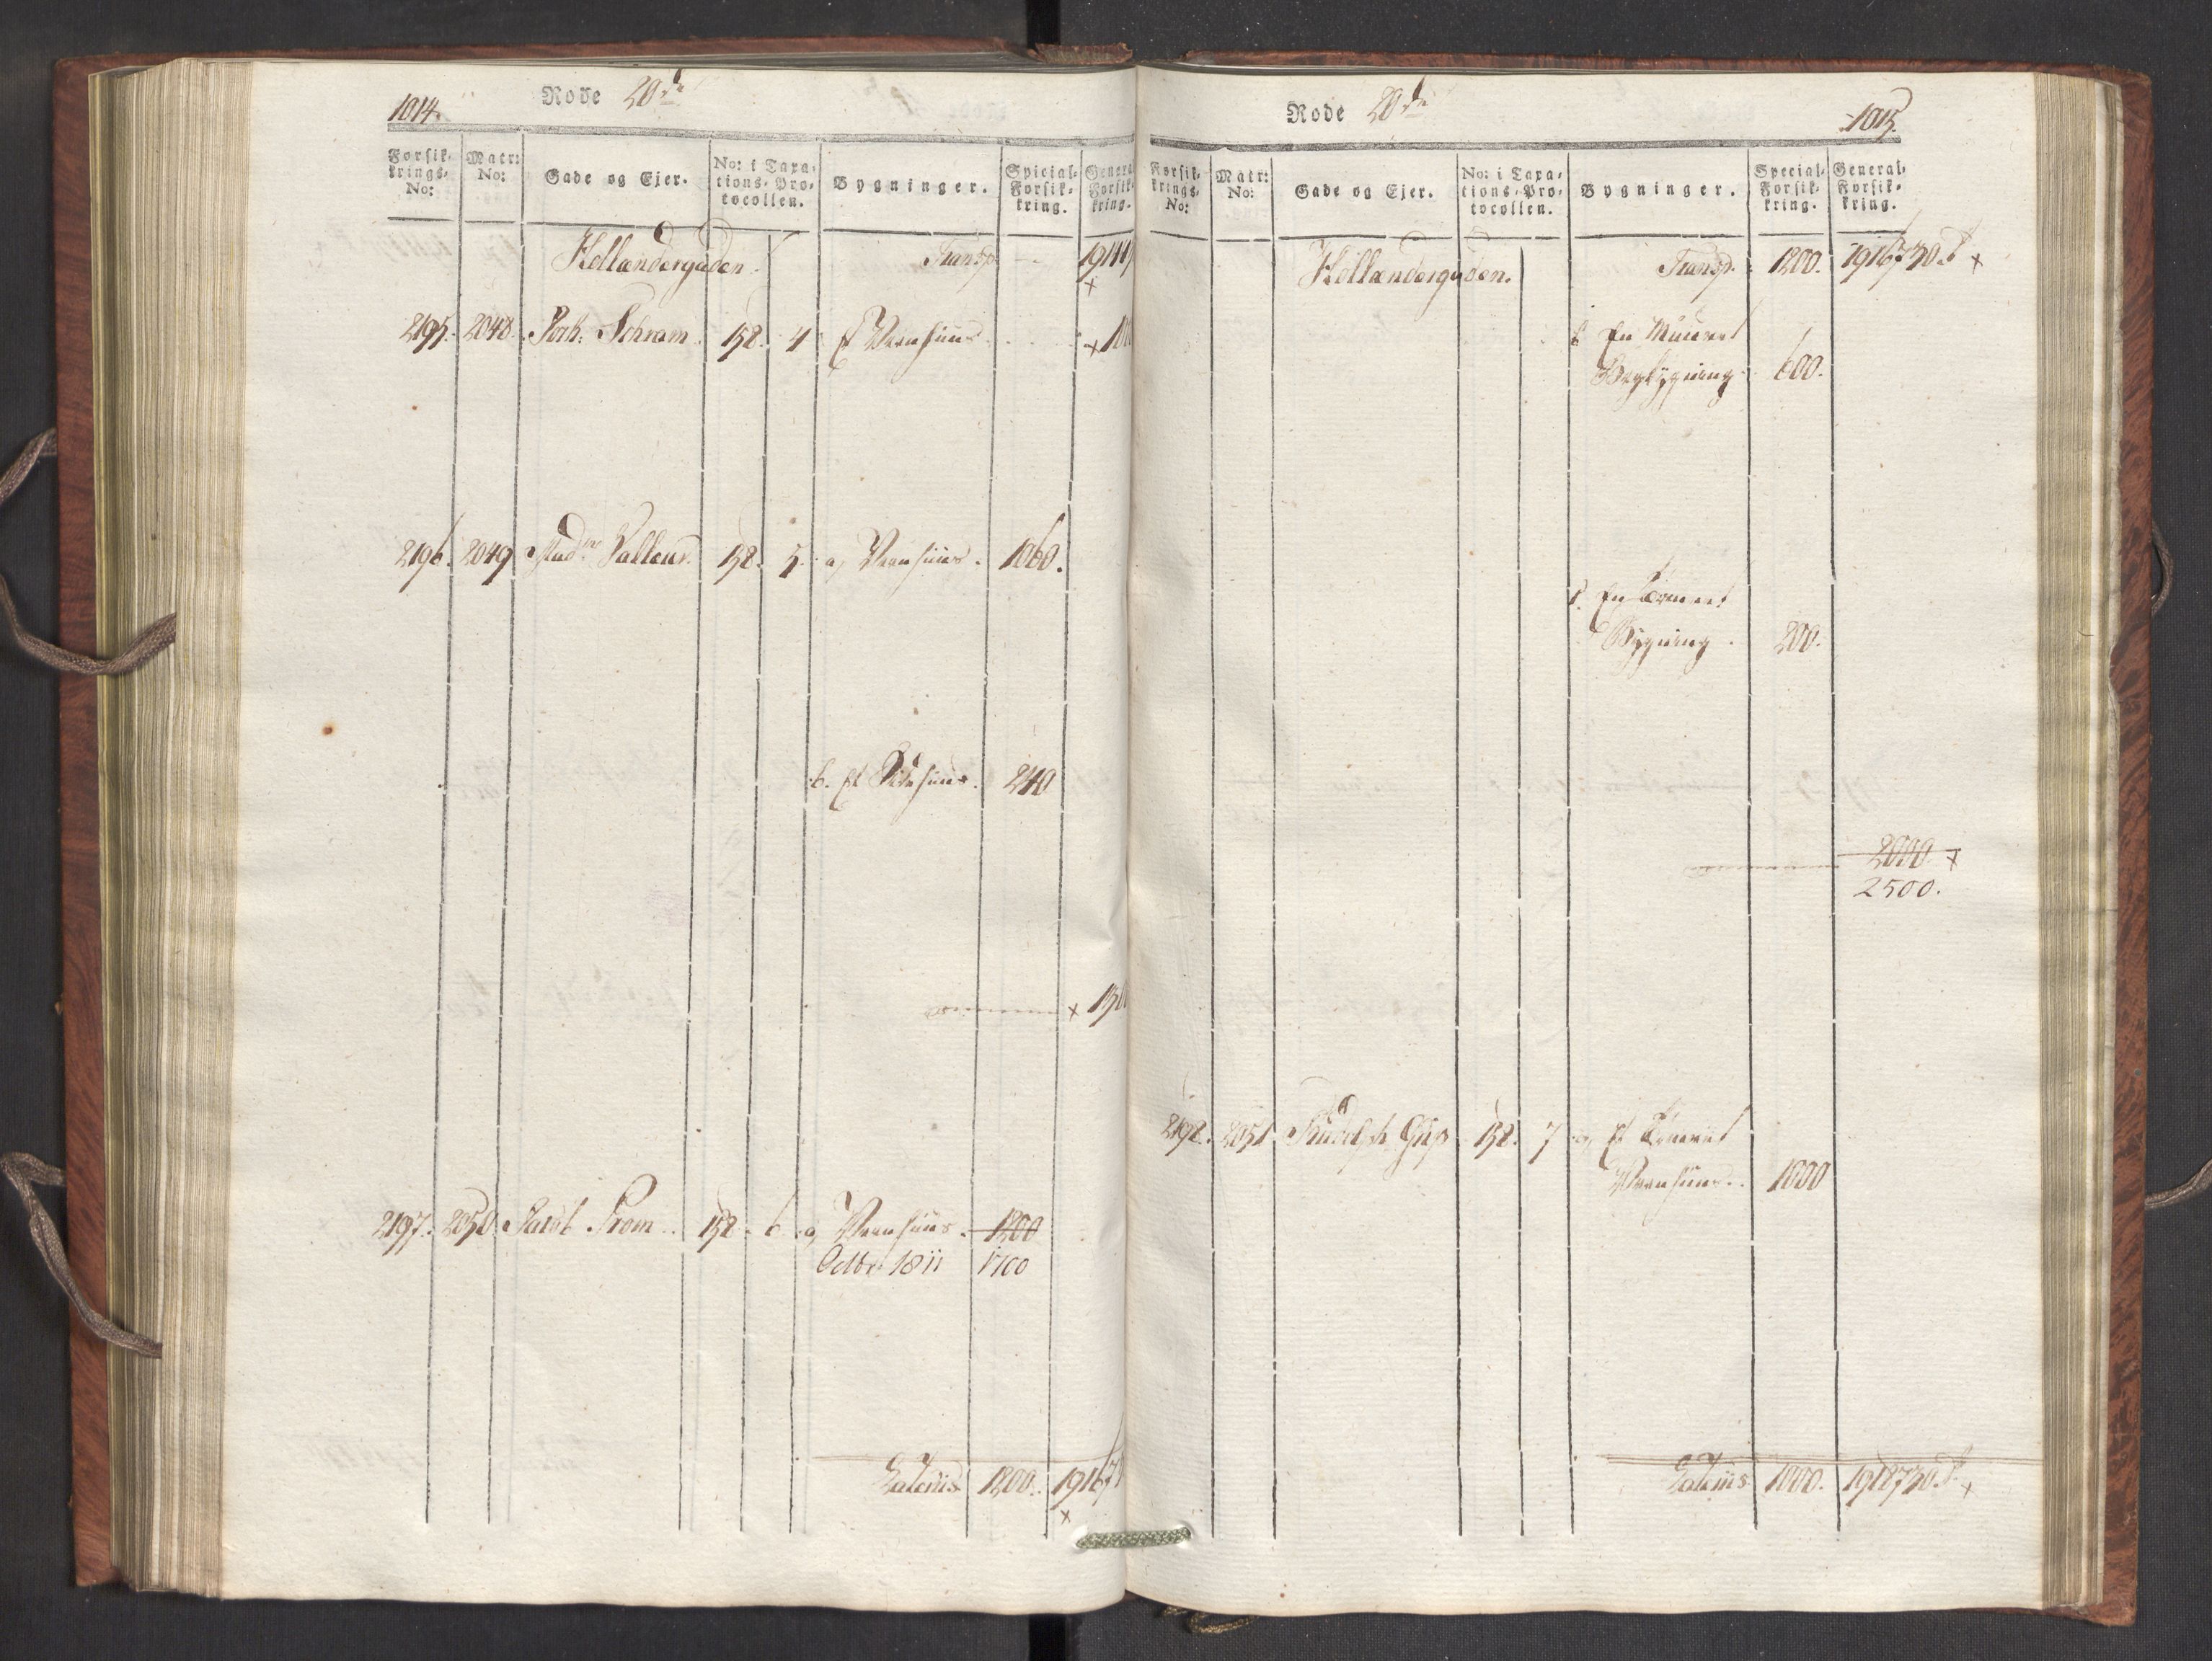 1014.
Rode 20de
Forsik- krings- No: Matr: No: Gade og Ejer. No: i Taxa- tions-Pro- tocollen. Bygninger. Special- Forsik- kring. General Forsik- kring.
Hollændergaden. Transp.
2195. 2048. Joch: Schram 158. 4 Et Vaanhuus
2196. 2049 158. 5. a, Vaanhuus. 1060.
b. Et 240
2197. 2050. Jacob From 158. 6 a, Vaanhuus. 1200
Octbr 1811 1700
Lateris 1200.
Rode 20de
1015.
Forsik- krings- No: Matr: No: Gade og Ejer. No: i Taxa- tions-Pro- tocollen. Bygninger. Special- Forsik- kring. General- Forsik- kring.
Hollændergaden. Transp. 1200. 1916730 x
b En Muuret
Bagbygning 600.
c. En Tømret
Bygning. 200.
2000 x
2500.
2198. 2051 Rudolph 158. 7 a, Et Tømret
Vaanhuus. 1000
Lateris 1000. 1918730 x